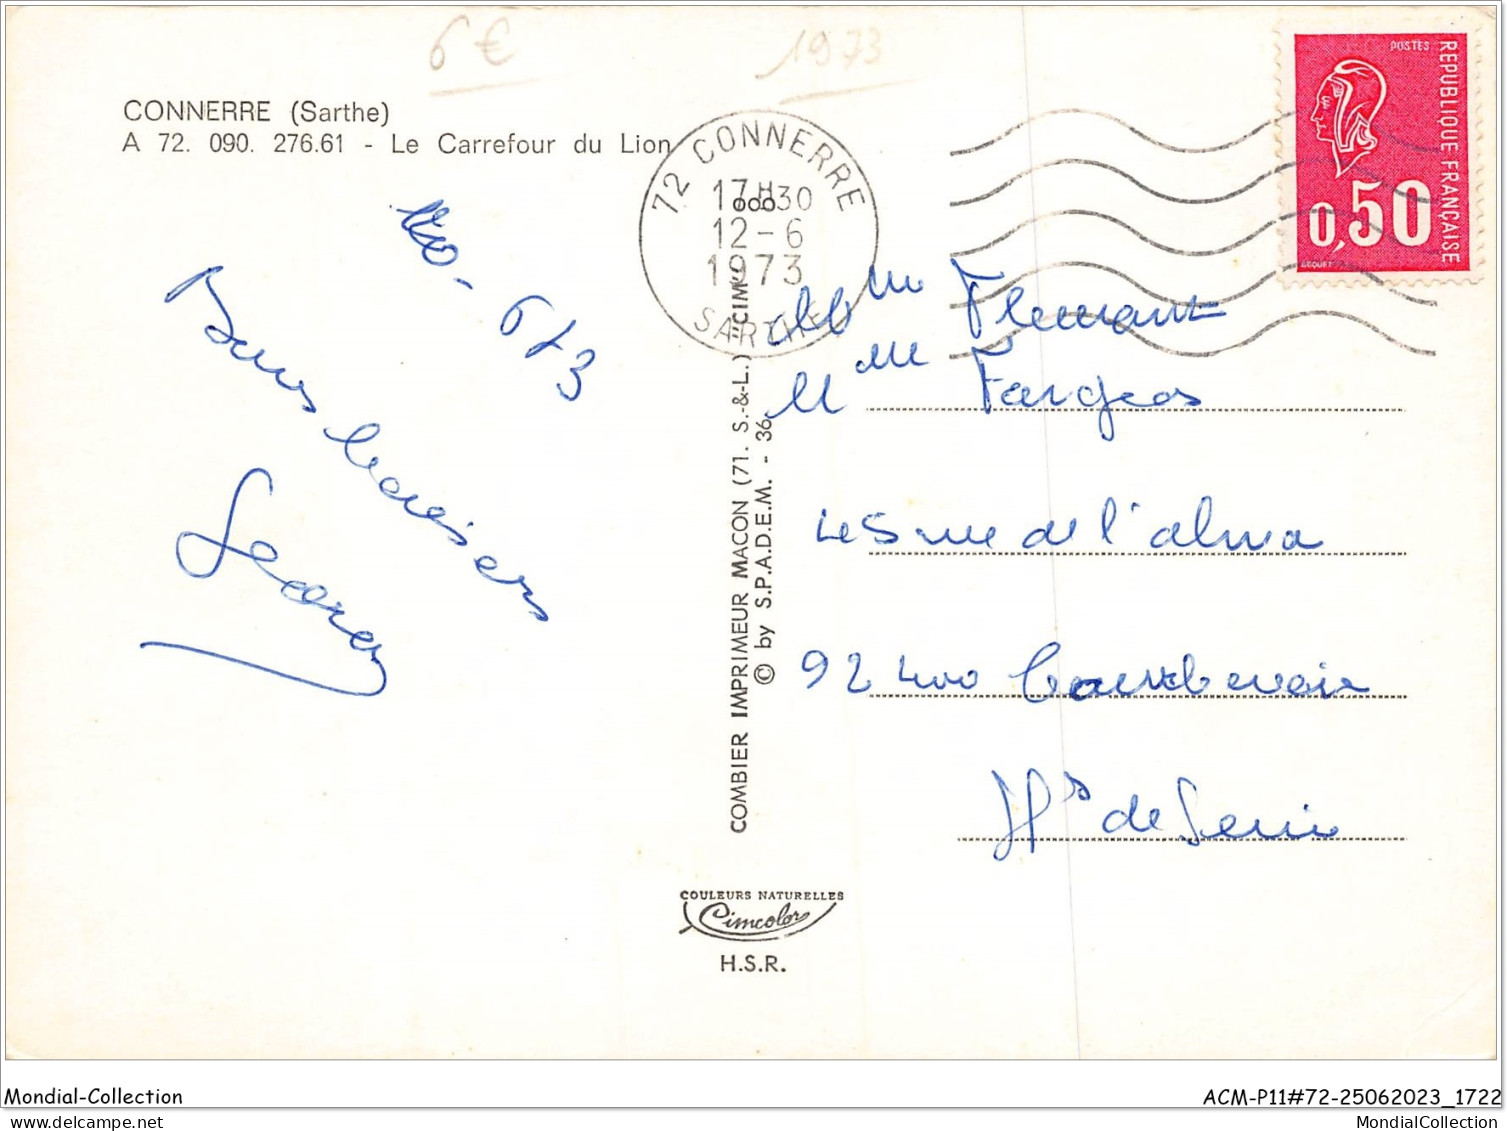 6 €
1973
CONNERRE (Sarthe)
A 72. 090. 276.61 - Le Carrefour du Lion
72 CONNERRE
17H30
12-6
1973
SARTHE
POSTES
REPUBLIQUE FRANÇAISE
0,50
BEQUET
6 73
Bons baisers
COMBIER IMPRIMEUR MACON (71. S.-&-L.) "CIM"
© by S.P.A.D.E.M. - 36
Mme
Mme Farges
rue de l'alma
92400 Courbevoie
Hts de Seine
COULEURS NATURELLES
Cimcolor
H.S.R.
Mondial-Collection
ACM-P11#72-25062023_1722
MondialCollection